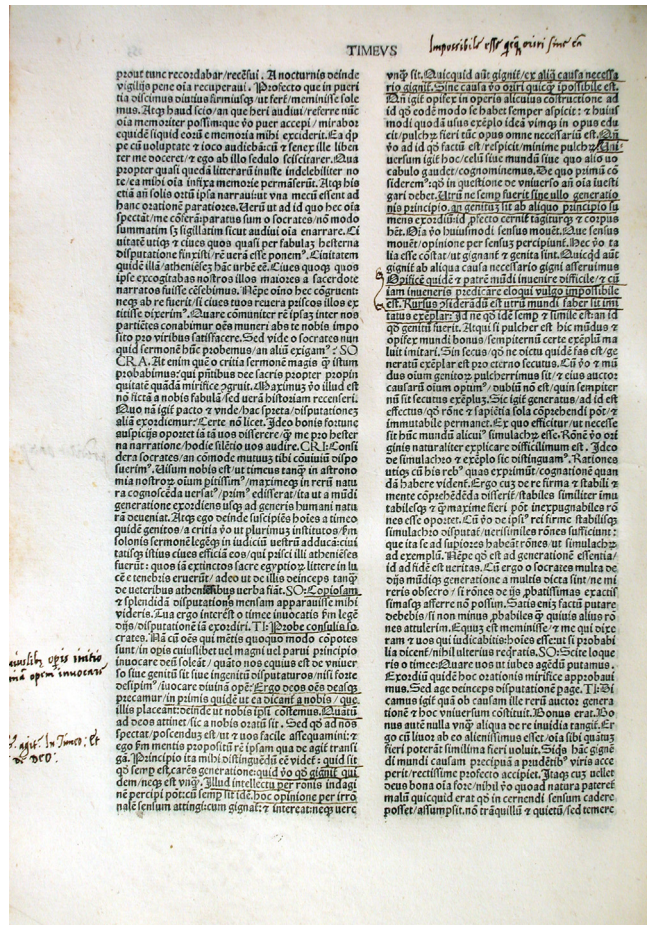 TIMEVS
Impossibile esse oriri sine
prout tunc recordabar/recēsui. A nocturnis deinde
vigilijs pene oīa recuperaui. Profecto que in pueri
tia discimus diutius firmiusqꝫ ut fert/meminisse sole
mus. Atqꝫ haud scio/an que heri audiui/referre nūc
oīa memoriter possim: que vo puer accepi/mirabor
equidē siquid eorū e memoria mihi exciderit.
pe cū voluptate & ioco audiebā: & senex ille liben
ter me doceret/& ego ab illo sedulo sciscitarer. Qua
propter quasi quedā litterarū inuste indelebiliter no
te/ea mihi oīa infixa memorie permāserūt. Atqꝫ his
etiā an solis ortū ipsa narraui: ut vna mecū essent ad
hanc orationē paratiores. Uerū ut ad id quo hec oīa
spectāt/me cōferā: paratus sum o socrates/nō modo
summatim sꝫ sigillatim sicut audiui oīa enarrare. Ci
uitatē utiqꝫ & ciues quos quasi per fabulaꝫ hesterna
disputatione finxisti/re verā esse ponemꝰ. Ciuitatem
quidē illā/atheniēseꝫ hāc urbē eē. Ciues quoqꝫ quos
ipse excogitabas nostros illos maiores a sacerdote
narratos fuisse cēsebimus. Nēpe oīno hec cōgruent:
neqꝫ ab re fuerit/si ciues tuos reuera priscos illos ex
titisse dixerimꝰ. Quare cōmuniter rē ipsaꝫ inter nos
partiētes conabimur oēs muneri abs te nobis impo
sito pro viribus satisfacere. Sed vide o socrates nun
quid sermonē hūc probemus/an aliū exigamꝰ? SO
CRA. At enim que o critia sermonē magis ꝗ̄ istum
probabimus: qui pn̄tibus dee sacris propter propin
quitatē quādā mirifice ꝯgruit. Maximuꝫ vo illud est
nō fictā a nobis fabulā/sed verā historiam recenseri.
Quo nā igit̄ pacto & vnde/hac spreta/disputationeꝫ
aliā exordiemur? Certe nō licet. Ideo honis fortune
suspicijs oportet iā tā uos disserere/ꝗ̄ me pro hester
na narratione/hodie silētio uos audire. CRI: Consi
dera socrates/an cōmode mutuuꝫ tibi cōuiuiū dispo
suerimꝰ. Uisum nobis est/ut timeus tanꝗ̄ in astrono
mia nostroꝝ oīum peritissimꝰ/maximeqꝫ in rerū natu
ra cognoscēda versatꝰ/primꝰ edisserat/ita ut a mūdi
generatione exordiens usqꝫ ad generis humani natu
rā deueniat. Atqꝫ ego deinde suscipiēs hoīes a timeo
quidē genitos/a critia vo ut plurimuꝫ institutos/
solonis sermonē legēqꝫ in iudiciū vestrū adducā: ciui
tatisqꝫ istius ciues efficiā eos/qui prisci illi atheniēses
fuerūt: quos iā extinctos sacre egyptioꝝ littere in lu
cē e tenebris eruerūt/adeo ut de illis deinceps tanꝗ̄
de veteribus athenensibus verba fiāt. SO: Copiosam
& splendidā disputationis mensam apparauisse mihi
videris. Tua ergo interēst o timee inuocatis legē
dijs/disputationē iā exordiri. TI: Probe consulis so
crates. Nā cū oēs qui mētis quoquo modo cōpotes
sunt/in opis cuiuslibet vel magni uel parui principio
inuocare deū soleāt/quāto nos equius est de vniuer
so siue genitū sit siue ingenitū disputaturos/nisi forte
desipimꝰ/iuocare diuinā opē: Ergo deos oēs deasqꝫ
precamur/in primis quidē ut ea dicant a nobis/que
illis placeant: deinde ut nobis ipsi cōstemus. Quatū
ad deos attinet/sic a nobis oratū sit. Sed qd̄ ad nos
spectat/poscenduꝫ est/ut & uos facile assequamini: &
ego mentis propositū rē ipsam qua de agit̄ transi
gā. Principio ita mihi distinguēdū eē videt̄: quid sit
qd̄ semp est/carēs generatione: quid vo qd̄ gignit̄ qui
dem/neqꝫ est vnqꝫ. Illud intellectu per rōnis indagi
nē percipi pōt: cū semp sit idē. hoc opinione per irrō
nalē sensum attingi: cum gignat̄: & intereat: neqꝫ uere
opis initio
opem inuocare
agit. In Timeo. Et
de DEO.
vnqꝫ sit. Quicquid aūt gignit̄/ex aliꝗ̄ causa necessa
rio gignit̄. Sine causa vo oriri quicꝗ̄ īpossibile est.
Qn̄ igit̄ opifex in operis alicuius constructione ad
id qd̄ eodē modo se habet semper aspicit: & huius
modi quodā usus exēplo ideā vimqꝫ in opus edu
cit/pulchꝝ fieri tūc opus omne necessariū est.
vo ad id qd̄ factū est/respicit/minime pulchꝝ. Uni
uersum igit̄ hoc/celū siue mundū siue quo alio uo
cabulo gaudet/cognominemus. De quo primū cō
siderem': qd̄ in questione de vniuerso an oīa īuesti
gari debet. Utrū ne semp fuerit sine ullo generatio
nis principio/an genituꝫ sit ab aliquo principio su
mens exordiū: id ꝓfecto cernit̄ tagiturqꝫ & corpus
hēt. Oīa vo huiusmodi sensus mouēt. Que sensus
mouēt/opinione per sensuꝫ percipiunt̄. Hec vo ta
lia esse cōstat/ut gignant̄ & genita sint. Quicqd̄ aūt
gignit̄ ab aliqua causa necessario gigni asseruimus
Opificē quidē & patrē mūdi inuenire difficile/& cū
iam inueneris predicare eloqui vulgo impossibile
est. Rursus ꝯsiderādū est utrū mundi faber sit imi
tatus exēplar: Id ne qd̄ idē semp & simile est: an id
qd̄ genitū fuerit. Atqui si pulcher est hic mūdus &
opifex mundi bonus/sempiternū certe exēplū ma
luit imitari. Sin secus/qd̄ ne dictu quidē fas est/ge
neratū exēplar est pro eterno secutus. Cū vo & mū
dus oīum genitoꝝ pulcherrimus sit/& eius auctor
causarū oīum optimꝰ/dubiū nō est/quin sempiter
nū sit secutus exēpluꝫ. Sic igit̄ generatus/ad id est
effectus/qd̄ rōne & sapiētia sola cōprehendi pōt/&
immutabile permanet. Ex quo efficitur/ut necesse
sit hūc mundū alicuiꝰ simulachꝝ esse. Rōnē vo ori
ginis naturaliter explicare difficillimum est. Ideo
de simulachro & exēplo sic distinguamꝰ. Rationes
utiqꝫ cū his rebꝰ quas exprimūt/cognationē quan
dā habere vident̄. Ergo cuꝫ de re firma & stabili &
mente cōprehēdēda disserit̄/stabiles similiter īmu
tabilesqꝫ & ꝗ̄maxime fieri pōt inexpugnabiles rō
nes esse oportet. Cū vo de ipsiꝰ rei firme stabilisqꝫ
simulachro disputat̄/verisimiles rōnes sufficiunt:
que ita se ad supiores habeāt rōnes/ut simulachꝝ
ad exemplū. Nēpe qd̄ est ad generationē essentia/
id ad fidē est veritas. Cū ergo o socrates multa de
dijs mūdiqꝫ generatione a multis dicta sint/ne mi
reris obsecro/si rōnes de ijs ꝓbatissimas exactis
simasqꝫ afferre nō possum. Satis eniꝫ factū putare
debebis/si non minus ꝓbabiles ꝗ̄ quiuis alius rō
nes attulerim. Equuꝫ est meminisse/& me qui dixe
ram & uos qui iudicabitis: hoīes esse: ut si probabi
lia dicent̄/nihil ulterius reqratis. SO: Scite loque
ris o timee: Quare uos ut iubes agēdū putamus.
Exordiū quidē hoc orationis mirifice approbaui
mus. Sed age deinceps disputationē page. TI: Di
camus igit̄ quā ob causam ille rerū auctor genera
tionē & hoc vniuersum cōstituit. Bonus erat. Bo
nus autē nulla vnꝗ̄ aliqua de re inuidia tangit̄. Er
go cū liuor ab eo alienissimus esset/oīa sibi quatuꝫ
fieri poterāt simillima fieri uoluit. Siqs hāc gignē
di mundi causam precipuā a prudētibꝰ viris acce
perit/rectissime profecto accipiet. Itaqꝫ cuꝫ uellet
deus bona oīa fore/nihil vo quoad natura pateret̄
malū quicquid erat qd̄ in cernendi sensum cadere
posset/assumpsit. nō trāquillū & quietū/sed temere